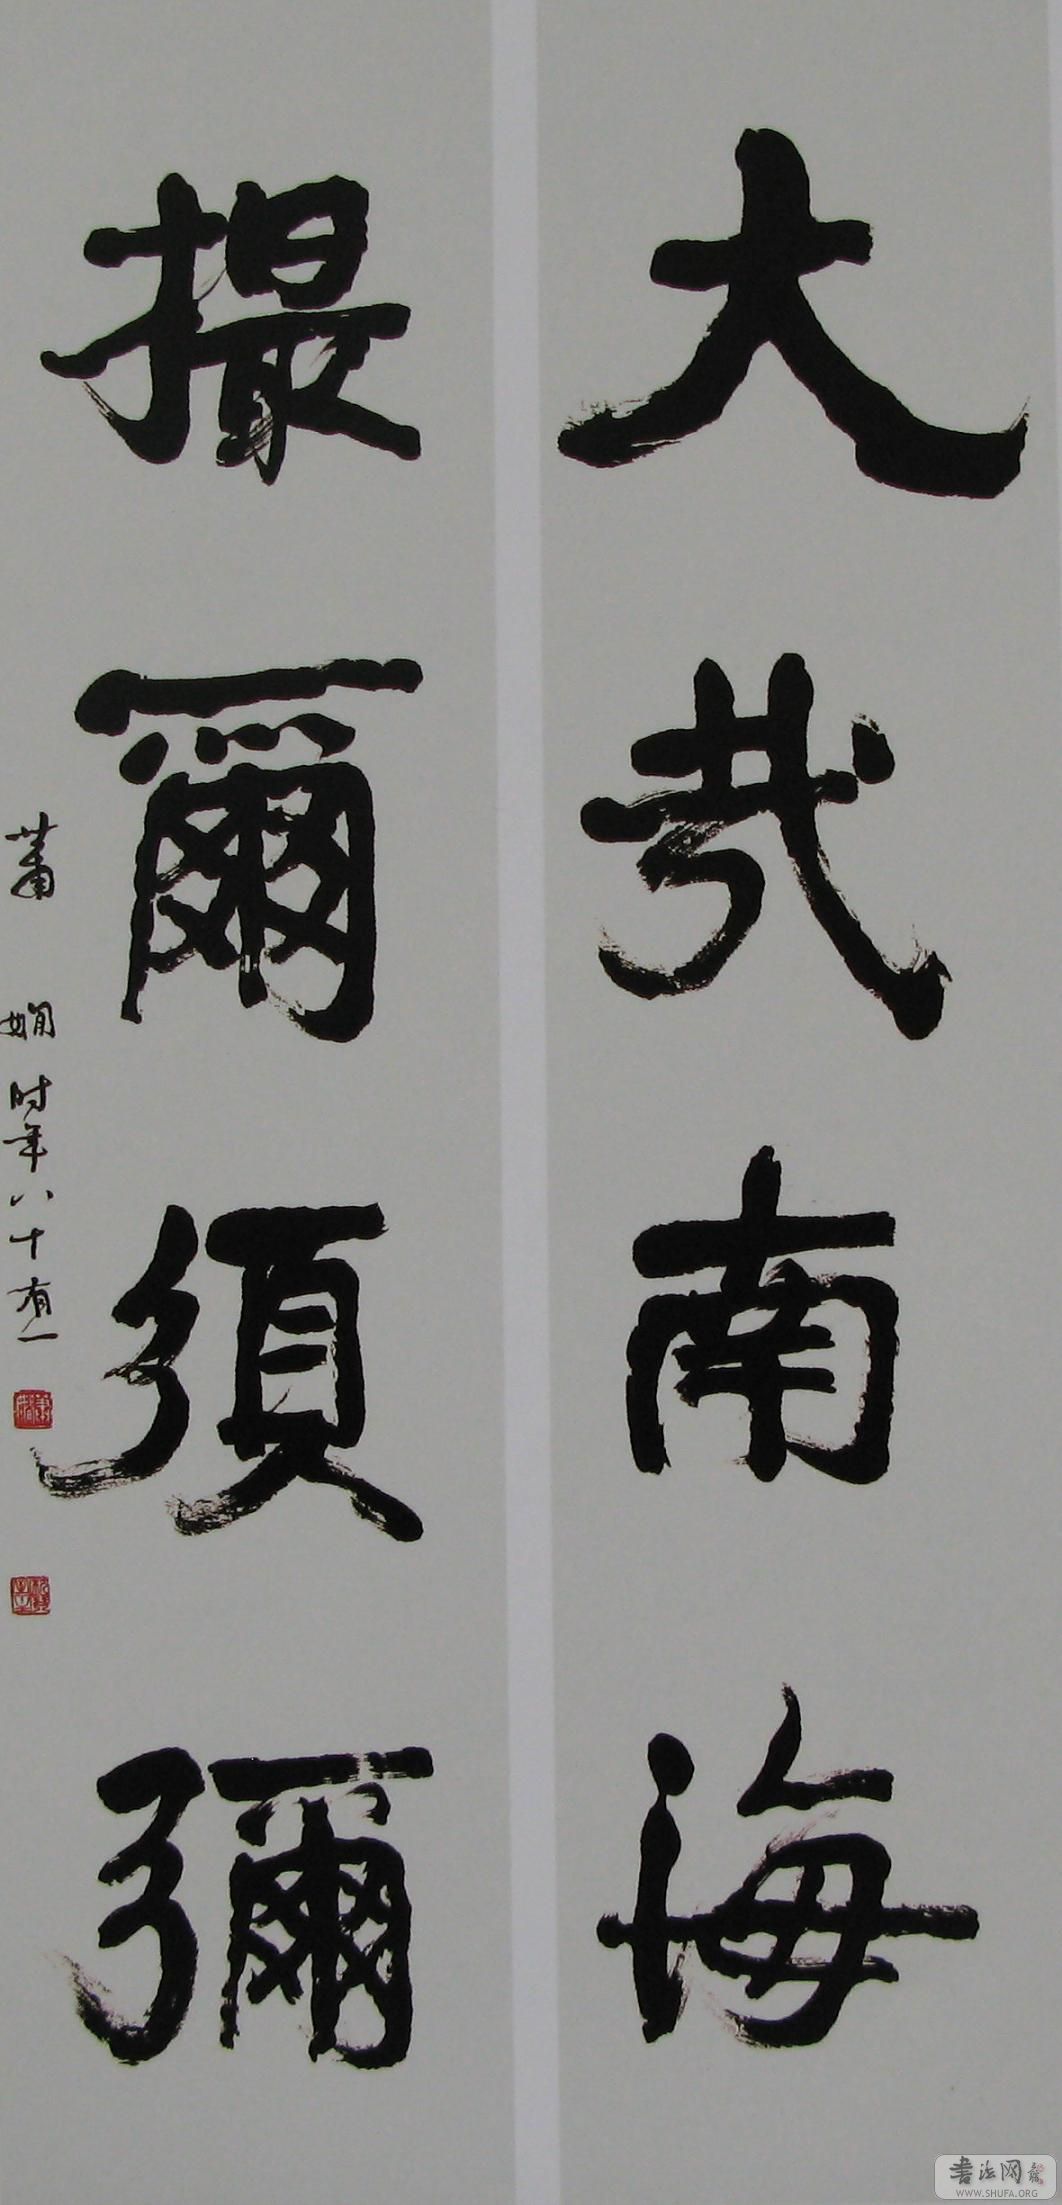 大哉南海
撮爾須彌
蕭嫻时年八十有一
书法网
WWW.SHUFA.ORG